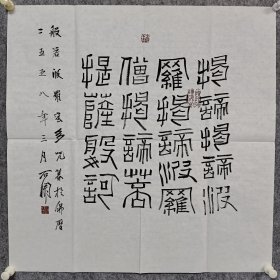 揭諦波
羅揭諦波羅
僧揭諦菩
提薩婆訶
般若波羅蜜多咒 於佛曆
二五五八年三月